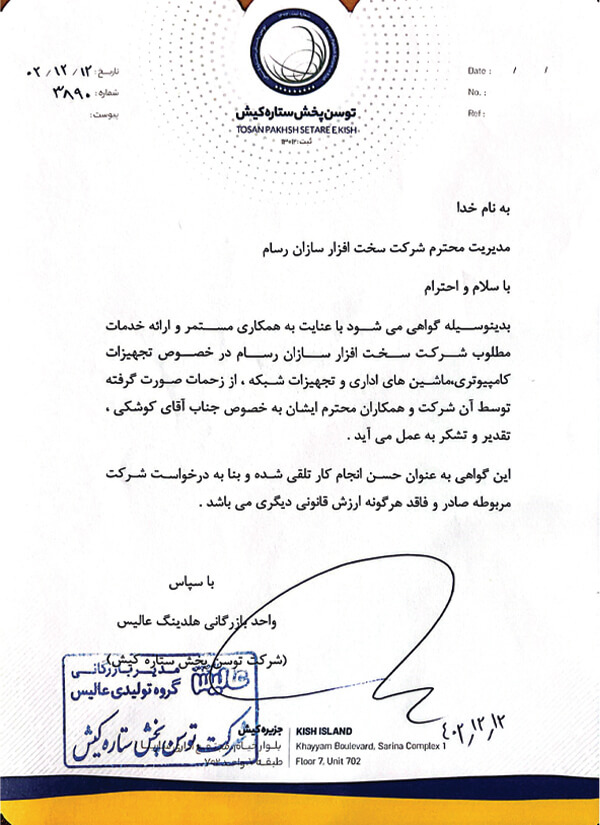 تاریخ: ۰۲/۱۲/۱۲
شماره: ۳۸۹۰
پیوست:
Date : / /
No. :
Ref :
توسن پخش ستاره کیش
TOSAN PAKHSH SETARE E KISH
ثبت: ۱۳۰۱۲
به نام خدا
مدیریت محترم شرکت سخت افزار سازان رسام
با سلام و احترام
بدینوسیله گواهی می شود با عنایت به همکاری مستمر و ارائه خدمات
مطلوب شرکت سخت افزار سازان رسام در خصوص تجهیزات
کامپیوتری،ماشین های اداری و تجهیزات شبکه ، از زحمات صورت گرفته
توسط آن شرکت و همکاران محترم ایشان به خصوص جناب آقای کوشکی ،
تقدیر و تشکر به عمل می آید .
این گواهی به عنوان حسن انجام کار تلقی شده و بنا به درخواست شرکت
مربوطه صادر و فاقد هرگونه ارزش قانونی دیگری می باشد .
با سپاس
واحد بازرگانی هلدینگ عالیس
(شرکت توسن پخش ستاره کیش)
عالیس
مدیر بازرگانی
گروه تولیدی عالیس
شرکت توسن پخش ستاره کیش
جزیره کیش
KISH ISLAND
Khayyam Boulevard, Sarina Complex 1
Floor 7, Unit 702
۴۰۲,۱۲,۱۲